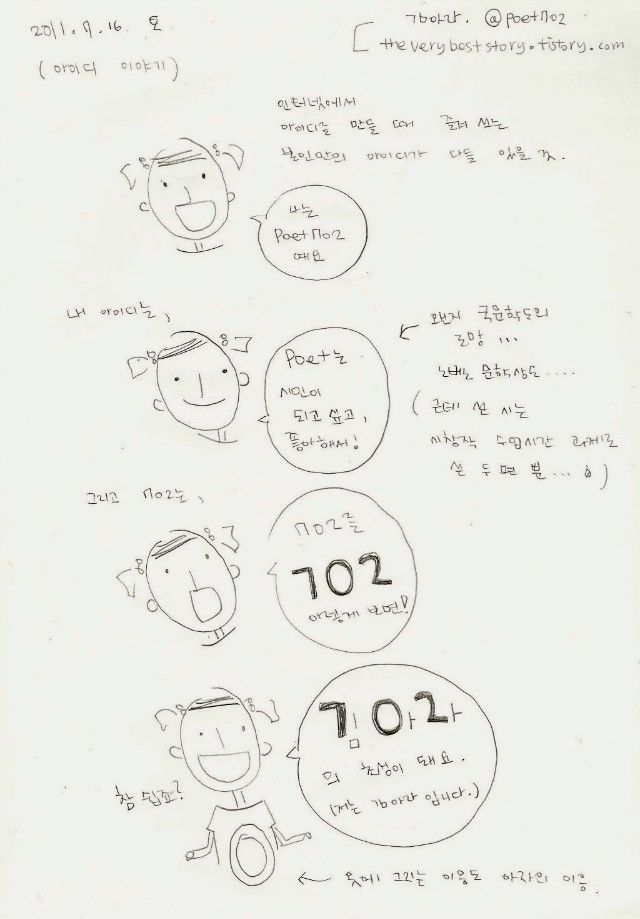 2011. 7. 16 토
김아라. @poet702
theverybeststory.tistory.com
(아이디 이야기)
인터넷에서
아이디를 만들 때 즐겨 쓰는
본인만의 아이디가 다들 있을 것.
나는
Poet702
예요
내 아이디는,
Poet는
시인이
되고 싶고,
좋아해서!
왠지 국문학도의
로망 ...
노벨 문학상도 ....
(근데 쓴 시는
시창작 수업시간 과제로
쓴 두 편 뿐...)
그리고 702는,
702를
702
이렇게 보면!
김아라
의 초성이 돼요.
(저는 김아라 입니다.)
참 쉽죠?
옷에 그리는 이응도 아라의 이응.